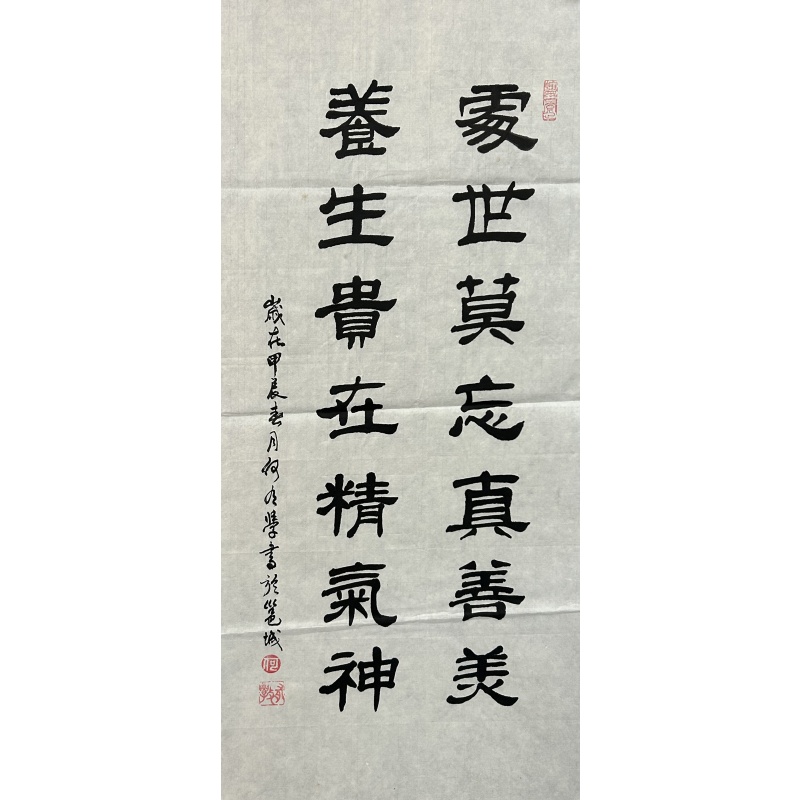 處世莫忘真善美
養生貴在精氣神
歲在甲辰春月何有學書於邕城